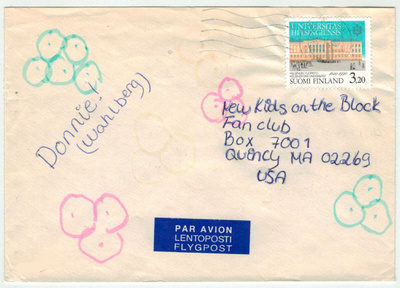 UNIVERSITAS
HELSINGIENSIS
1640-1990
SUOMI FINLAND 3,20
Donnie!
(Wahlberg)
New Kids on the Block
Fan club
Box 7001
Quincy MA 02269
USA
PAR AVION
LENTOPOSTI
FLYGPOST